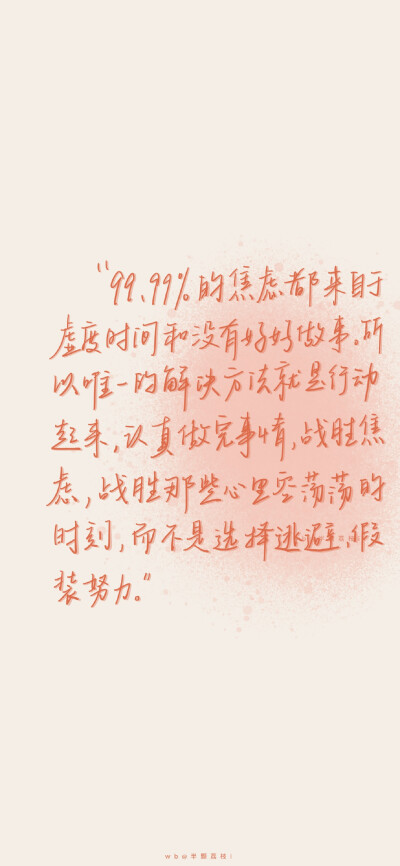 “99.99%的焦虑都来自于
虚度时间和没有好好做事。所
以唯一的解决方法就是行动
起来,认真做完事情,战胜焦
虑,战胜那些心里空荡荡的
时刻,而不是选择逃避、假
装努力。”